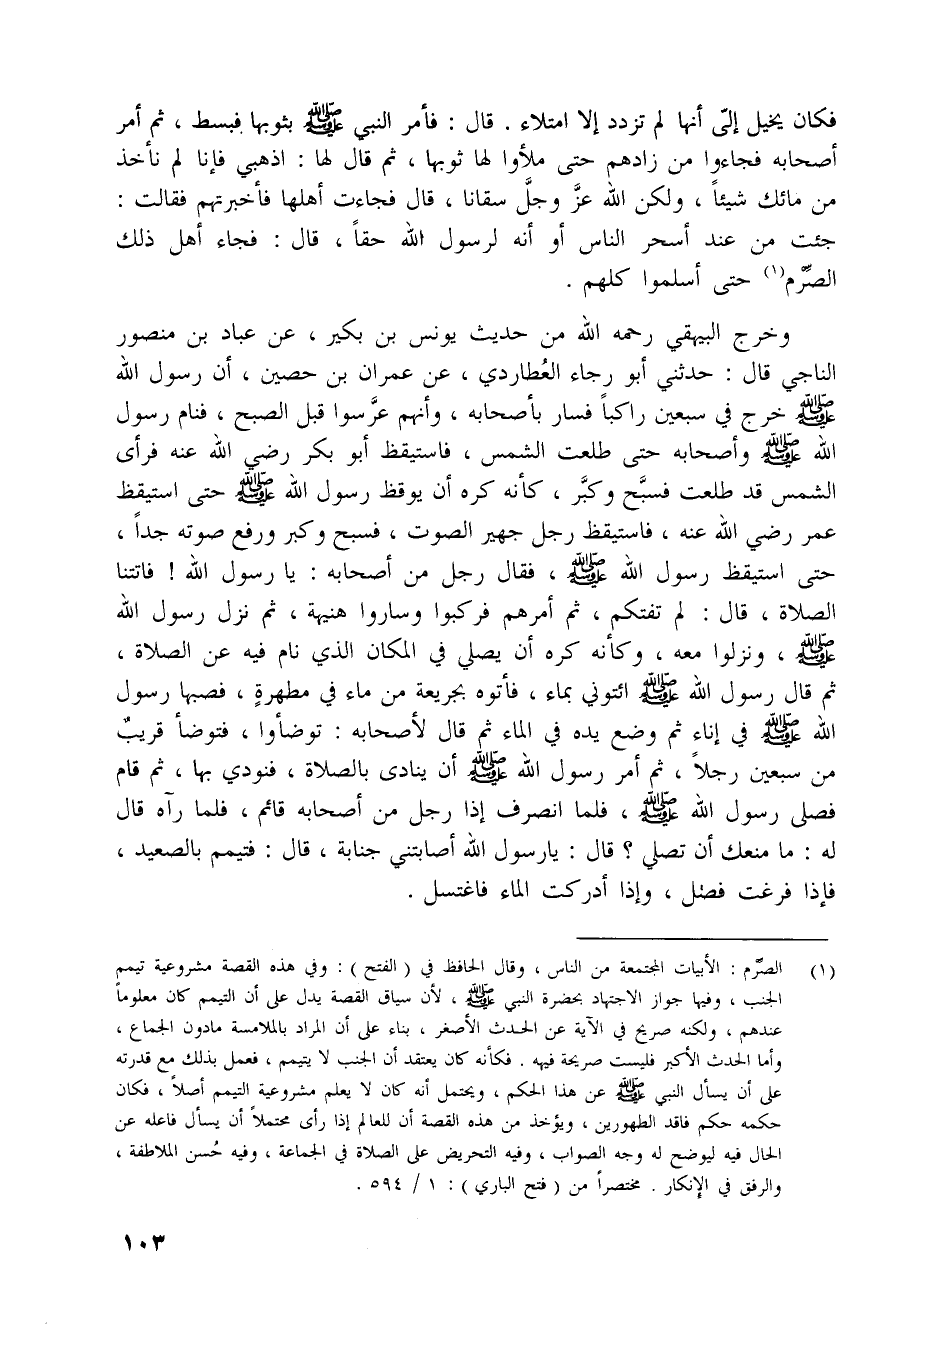 فكان يخيل إلىّ أنها لم تزدد إلا امتلاء . قال : فأمر النبي ﷺ بثوبها فبسط ، ثم أمر
أصحابه فجاءوا من زادهم حتى ملأوا لها ثوبها ، ثم قال لها : اذهبي فإنا لم نأخذ
من مائك شيئاً ، ولكن الله عزَّ وجلَّ سقانا ، قال فجاءت أهلها فأخبرتهم فقالت :
جئت من عند أسحر الناس أو أنه لرسول الله حقاً ، قال : فجاء أهل ذلك
الصِّرم(١) حتى أسلموا كلهم .
وخرج البيهقي رحمه الله من حديث يونس بن بكير ، عن عباد بن منصور
الناجي قال : حدثني أبو رجاء العُطاردي ، عن عمران بن حصين ، أن رسول الله
ﷺ خرج في سبعين راكباً فسار بأصحابه ، وأنهم عرَّسوا قبل الصبح ، فنام رسول
الله ﷺ وأصحابه حتى طلعت الشمس ، فاستيقظ أبو بكر رضي الله عنه فرأى
الشمس قد طلعت فسبَّح وكبَّر ، كأنه كره أن يوقظ رسول الله ﷺ حتى استيقظ
عمر رضي الله عنه ، فاستيقظ رجل جهير الصوت ، فسبح وكبر ورفع صوته جداً ،
حتى استيقظ رسول الله ﷺ ، فقال رجل من أصحابه : يا رسول الله ! فاتتنا
الصلاة ، قال : لم تفتكم ، ثم أمرهم فركبوا وساروا هنيهة ، ثم نزل رسول الله
ﷺ ، ونزلوا معه ، وكأنه كره أن يصلي في المكان الذي نام فيه عن الصلاة ،
ثم قال رسول الله ﷺ ائتوني بماء ، فأتوه بجريعة من ماء في مطهرةٍ ، فصبها رسول
الله ﷺ في إناء ثم وضع يده في الماء ثم قال لأصحابه : توضأوا ، فتوضأ قريبٌ
من سبعين رجلاً ، ثم أمر رسول الله ﷺ أن ينادى بالصلاة ، فنودي بها ، ثم قام
فصلى رسول الله ﷺ ، فلما انصرف إذا رجل من أصحابه قائم ، فلما رآه قال
له : ما منعك أن تصلي ؟ قال : يارسول الله أصابتني جنابة ، قال : فتيمم بالصعيد ،
فإذا فرغت فصل ، وإذا أدركت الماء فاغتسل .
(١) الصِّرم : الأبيات المجتمعة من الناس ، وقال الحافظ في ( الفتح ) : وفي هذه القصة مشروعية تيمم
الجنب ، وفيها جواز الاجتهاد بحضرة النبي ﷺ ، لأن سياق القصة يدل على أن التيمم كان معلوماً
عندهم ، ولكنه صريح في الآية عن الحدث الأصغر ، بناء على أن المراد بالملامسة مادون الجماع ،
وأما الحدث الأكبر فليست صريحة فيه . فكأنه كان يعتقد أن الجنب لا يتيمم ، فعمل بذلك مع قدرته
على أن يسأل النبي ﷺ عن هذا الحكم ، ويحتمل أنه كان لا يعلم مشروعية التيمم أصلاً ، فكان
حكمه حكم فاقد الطهورين ، ويؤخذ من هذه القصة أن للعالم إذا رأى محتملاً أن يسأل فاعله عن
الحال فيه ليوضح له وجه الصواب ، وفيه التحريض على الصلاة في الجماعة ، وفيه حُسن الملاطفة ،
والرفق في الإنكار . مختصراً من ( فتح الباري ) : ١ / ٥٩٤ .
١٠٣